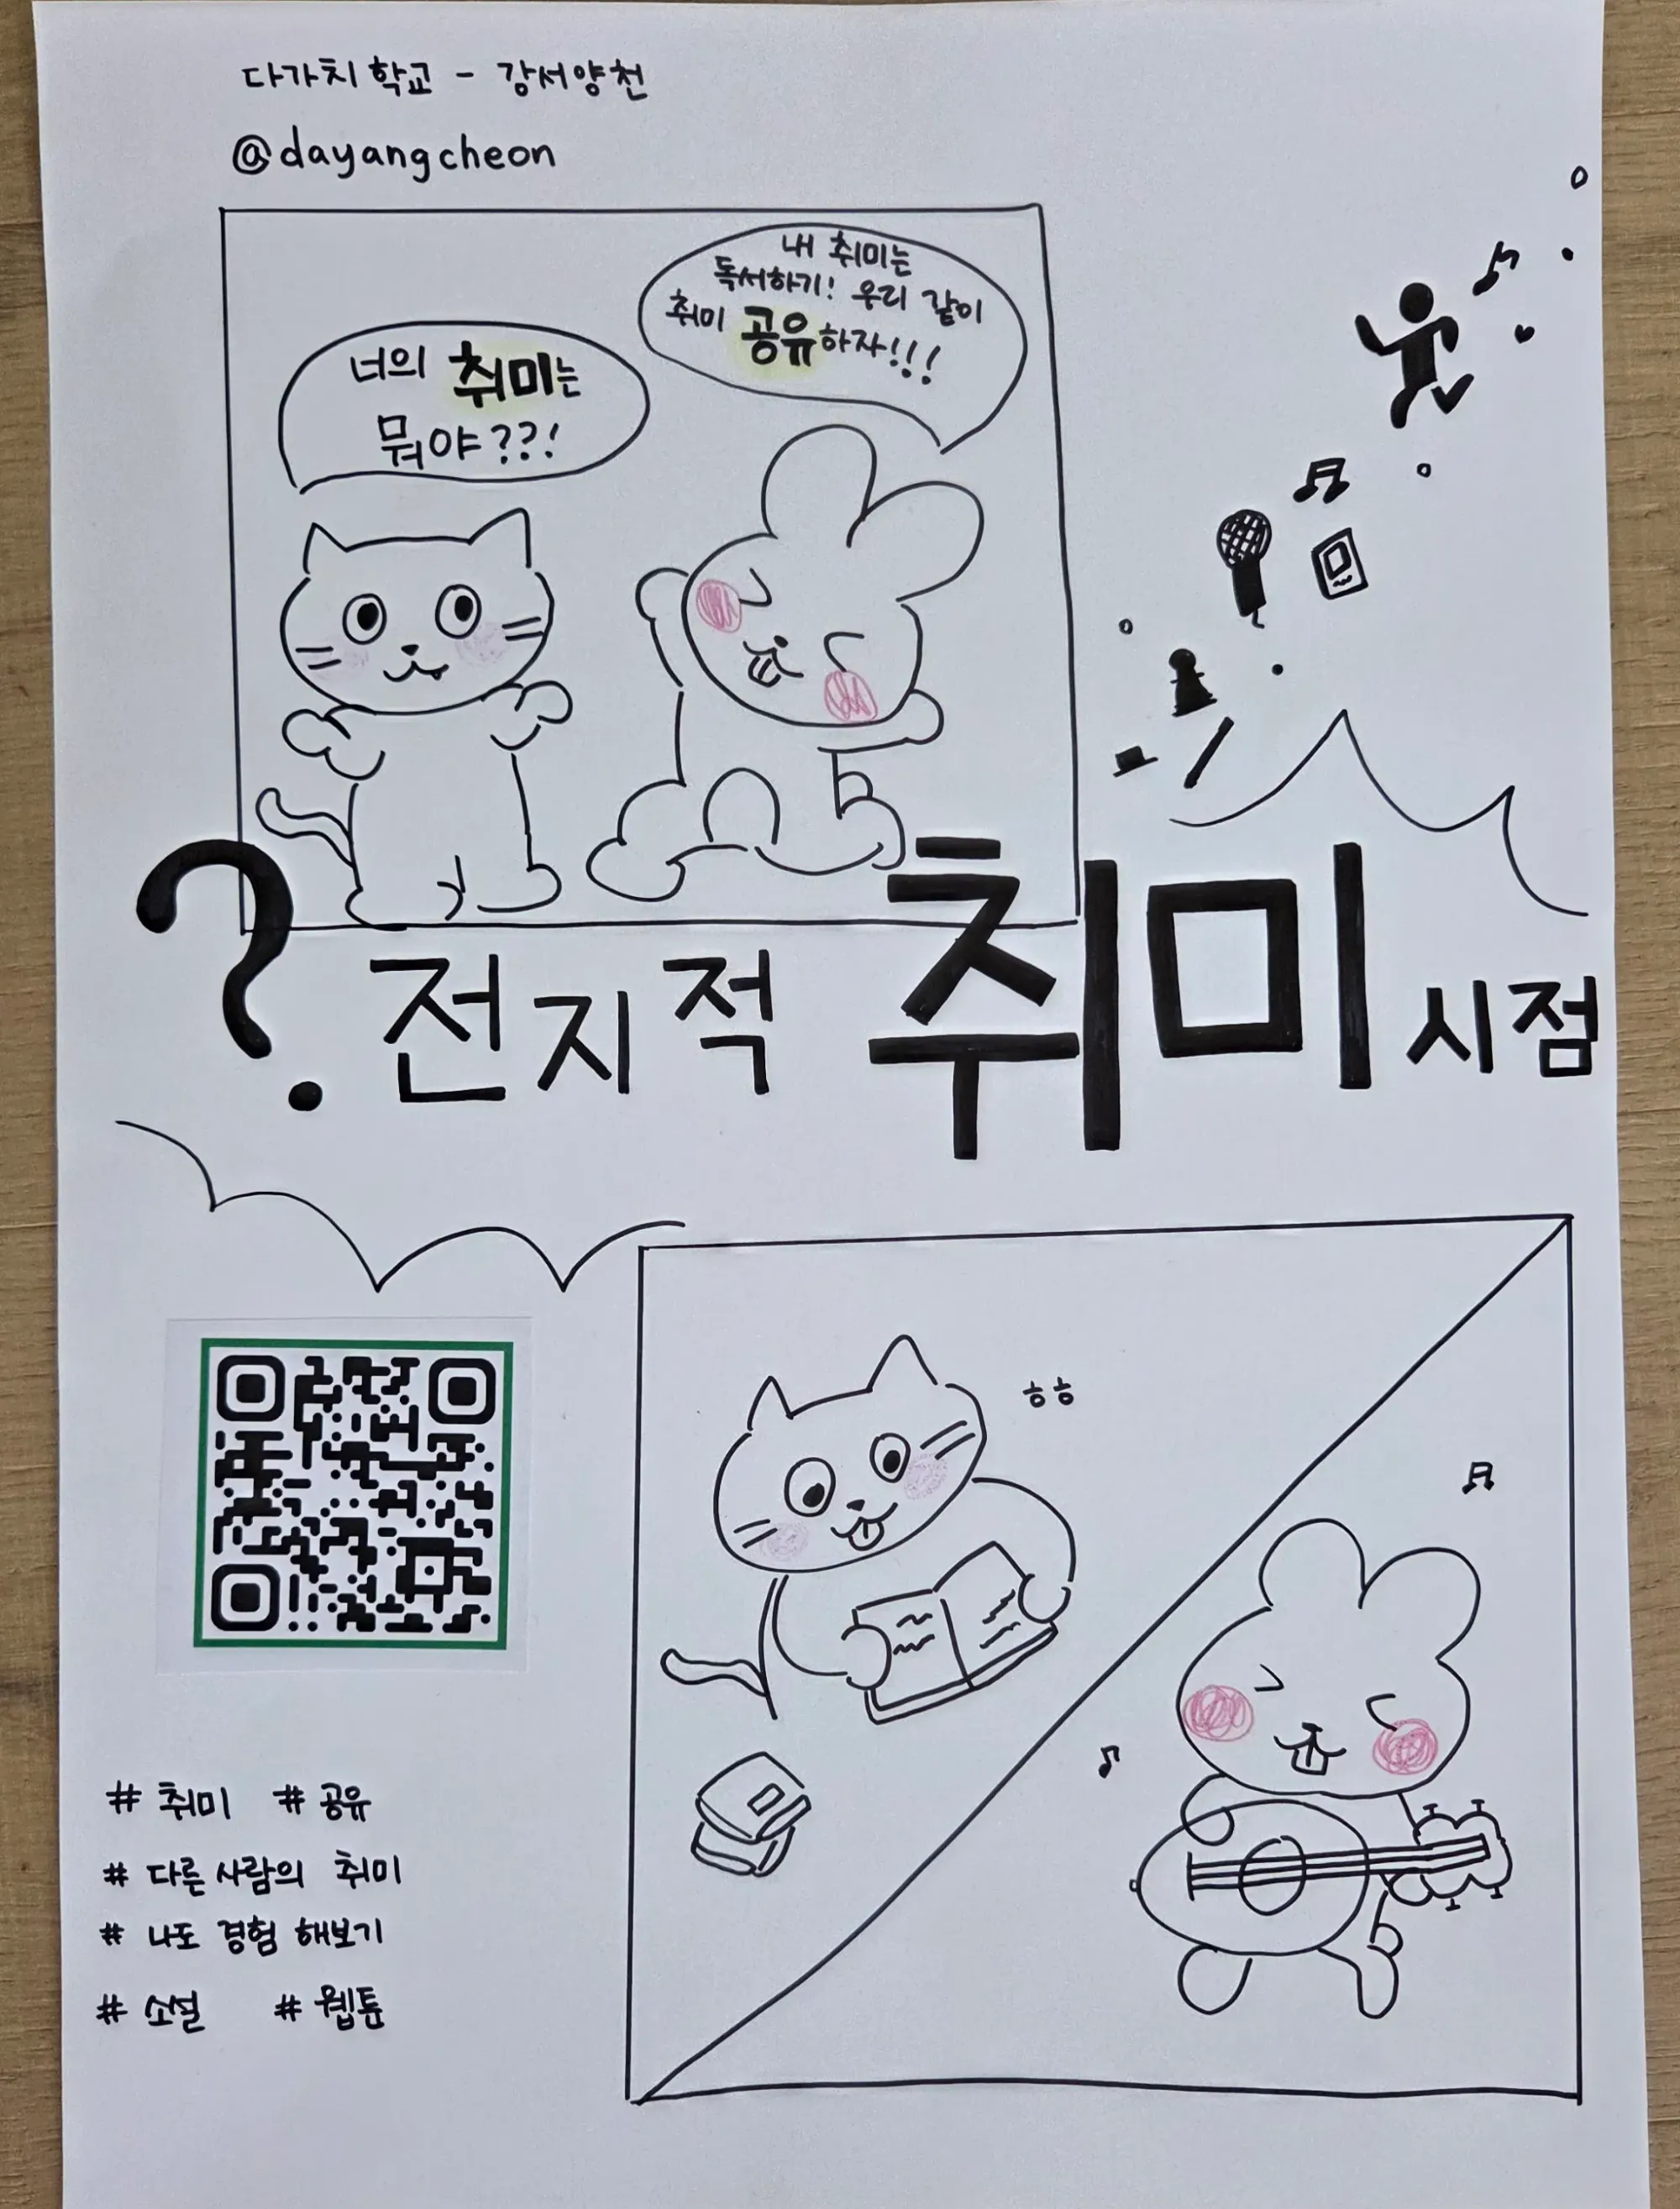 다가치학교 - 강서양천
@dayangcheon
너의 취미는
뭐야??!
내 취미는
독서하기! 우리 같이
취미 공유하자!!!
? 전지적 취미 시점
ㅎㅎ
# 취미 # 공유
# 다른 사람의 취미
# 나도 경험 해보기
# 소설 # 웹툰